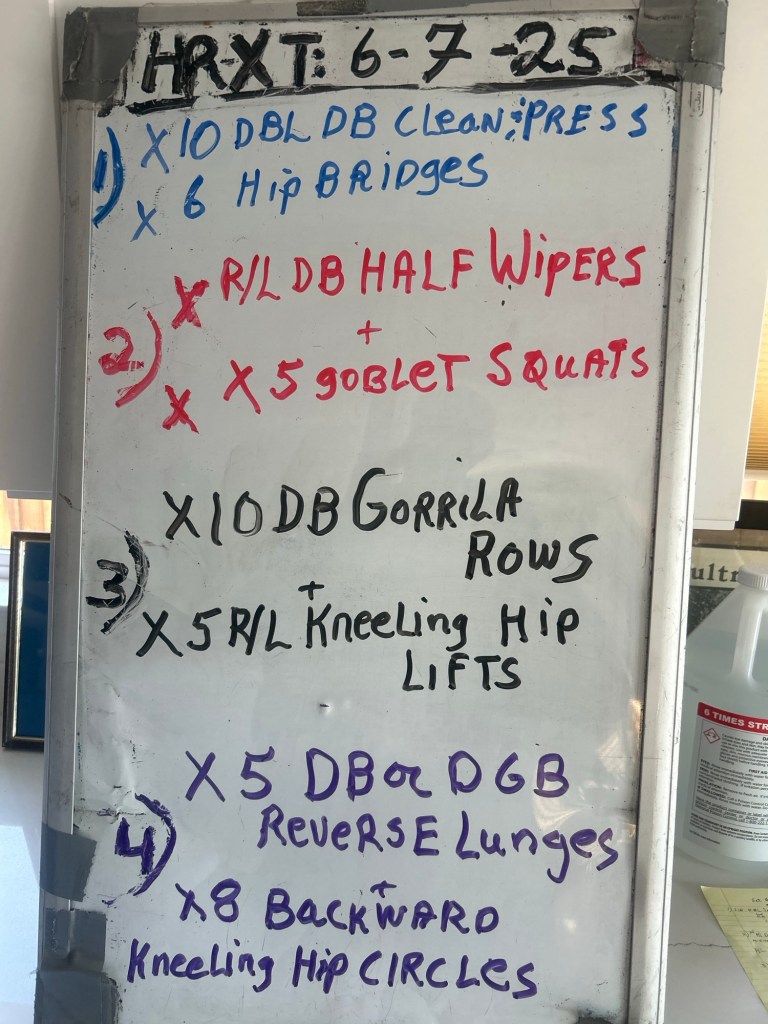 HR-XT: 6-7-25
1) X10 DBL DB Clean & PRESS
X 6 Hip BRidges
2) X R/L DB HALF WipERS
+
X X5 goBLET SQUATS
3) X10 DB GORRiLA
ROWS
+
X5 R/L Kneeling Hip
LiFTS
4) X5 DB or DGB
REVERSE Lunges
+
X8 BACKWARD
Kneeling Hip CIRCLES
ultr
6 TIMES STR